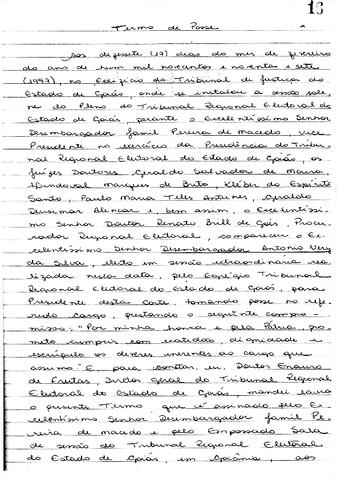 16
Termo de Posse
Aos dezesete (17) dias do mes de fevereiro
do ano de hum mil novecentos e noventa e sete
(1997), no Edifício do Tribunal de Justiça do
Estado de Goiás, onde se instalou a sessão sole
ne do Pleno do Tribunal Regional Eleitoral do
Estado de Goiás, perante o Excelentíssimo Senhor
Desembargador Jamil Pereira de Macedo, Vice
Presidente no exercício da Presidência do Tribu
nal Regional Eleitoral do Estado de Goiás, os
Juízes Doutores, Geraldo Salvador de Moura,
Marques de Brito, Kléber do Espírito
Santo, Paulo Maria Teles Antunes, Geraldo
Deusimar Alencar e, bem assim, o Excelentíssi
mo Senhor Doutor Renato Brill de Góis, Procu
rador Regional Eleitoral, compareceu o Ex
celentíssimo Senhor Desembargador Antonio Nery
da Silva, eleito em sessão extraordinária re
alizada nesta data, pelo Egrégio Tribunal
Regional Eleitoral do Estado de Goiás, para
Presidente desta Corte, tomando posse no refe
rido cargo, prestando o seguinte compro
misso: "Por minha honra e pela Pátria, pro
meto cumprir com exatidão, dignidade e
escrúpulo os deveres inerentes ao cargo que
assumo". E, para constar, eu, Doutor
de Freitas, Diretor Geral do Tribunal Regional
Eleitoral do Estado de Goiás, mandei lavrar
o presente Termo, que é assinado pelo Ex
celentíssimo Senhor Desembargador Jamil Pe
reira de Macedo e pelo Empossado. Sala
de sessão do Tribunal Regional Eleitoral
do Estado de Goiás, em Goiânia, aos